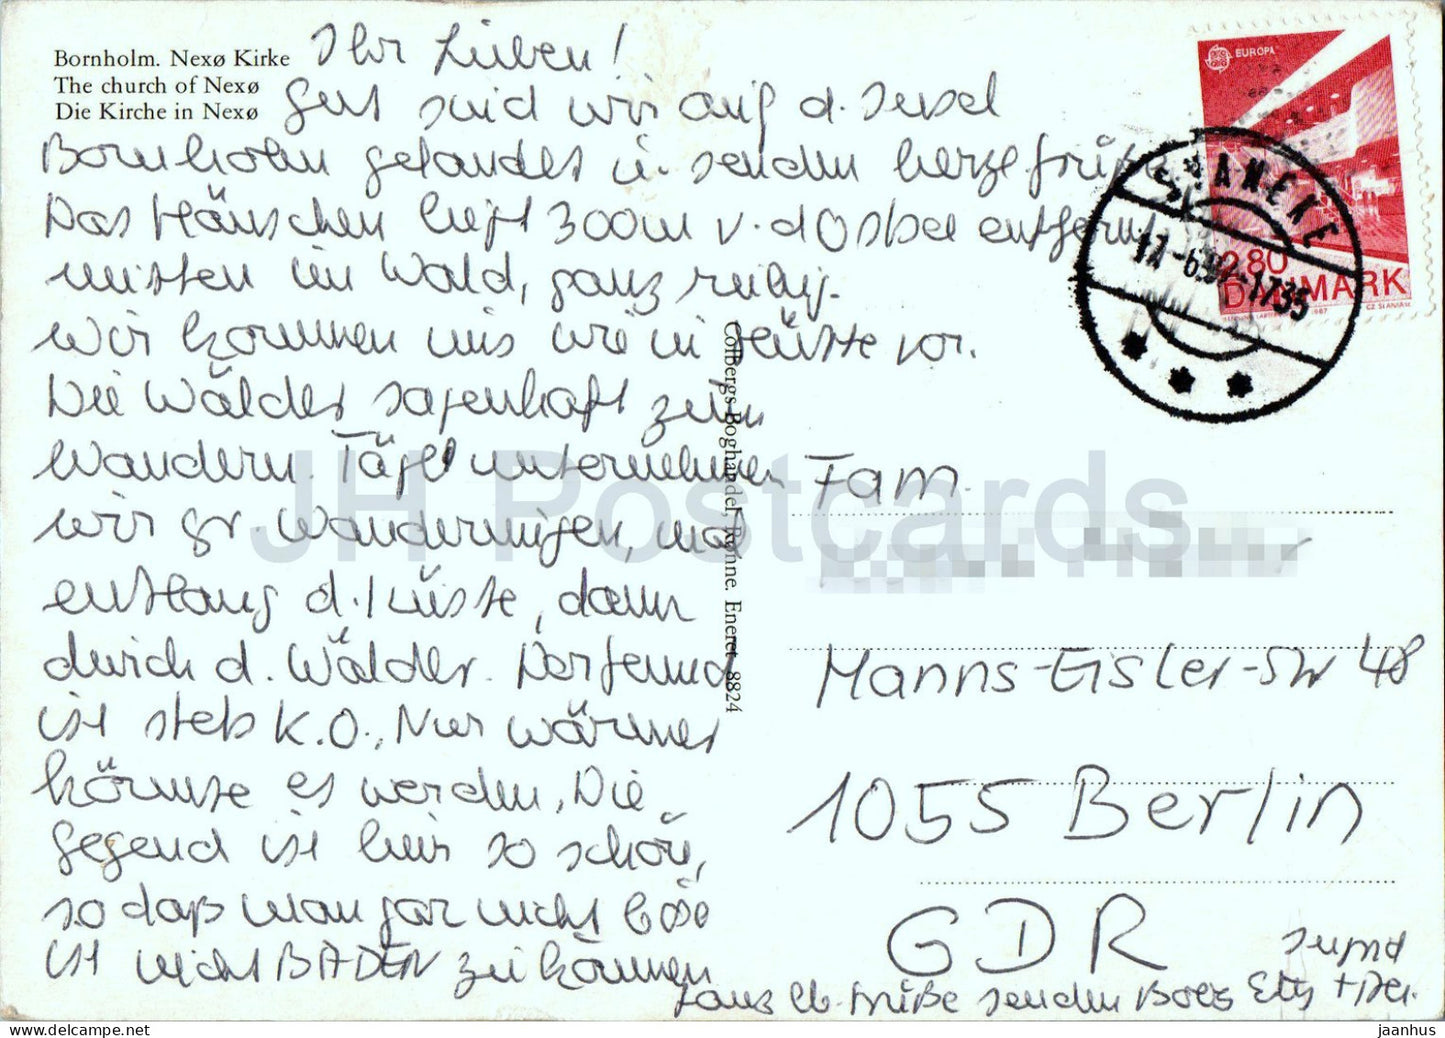 Bornholm. Nexø Kirke
The church of Nexø
Die Kirche in Nexø
Ihr Lieben!
Gut sind wir auf d. Insel
Bornholm gelandet u. senden herzl. Grüße
Das Häuschen liegt 300m v. d Ostsee entfernt
mitten im Wald, ganz ruhig.
Wir kommen uns wie in vor.
Die Wälder sagenhaft zum
Wandern. Tägl unternehmen
wir gr. Wanderungen, mal
entlang d. Küste, dann
durch d. Wälder. 
ist stets K.O., Nur wärmer
könnte es werden, Die
Gegend ist hier so schön,
so daß man gar nicht böse
ist nicht BADEN zu können
Ganz lb. Grüße senden
Colbergs Boghandel, Rønne. Eneret 8824
EUROPA
2.80
DANMARK
SVANEKE
Fam.
Hanns-Eisler-Str 48
1055 Berlin
GDR
JH Postcards
jaanhus.com